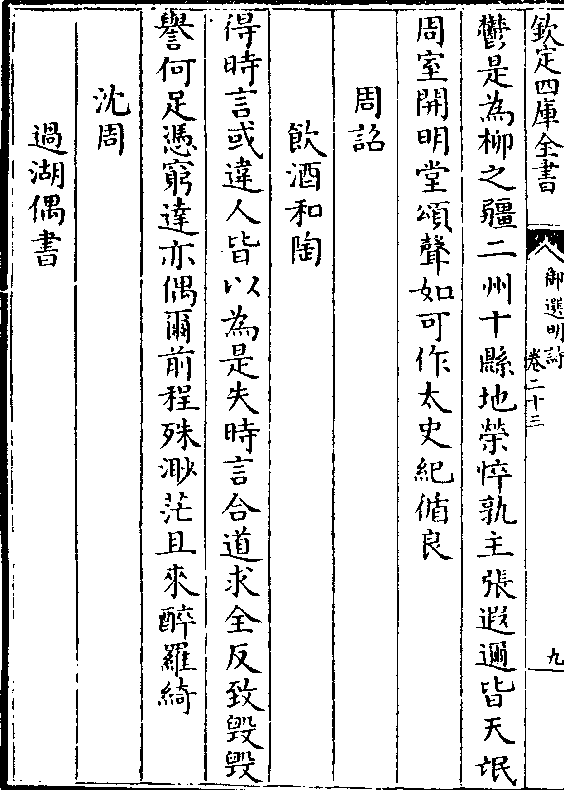 欽定四庫全書
御選明詩
卷二十三
九
鬱是為柳之疆二州十縣地榮悴孰主張遐邇皆天氓
周室開明堂頌聲如可作太史紀循良
周詔
飲酒和陶
得時言或違人皆以為是失時言合道求全反致毀毀
譽何足憑窮達亦偶爾前程殊渺茫且來醉羅綺
沈周
過湖偶書